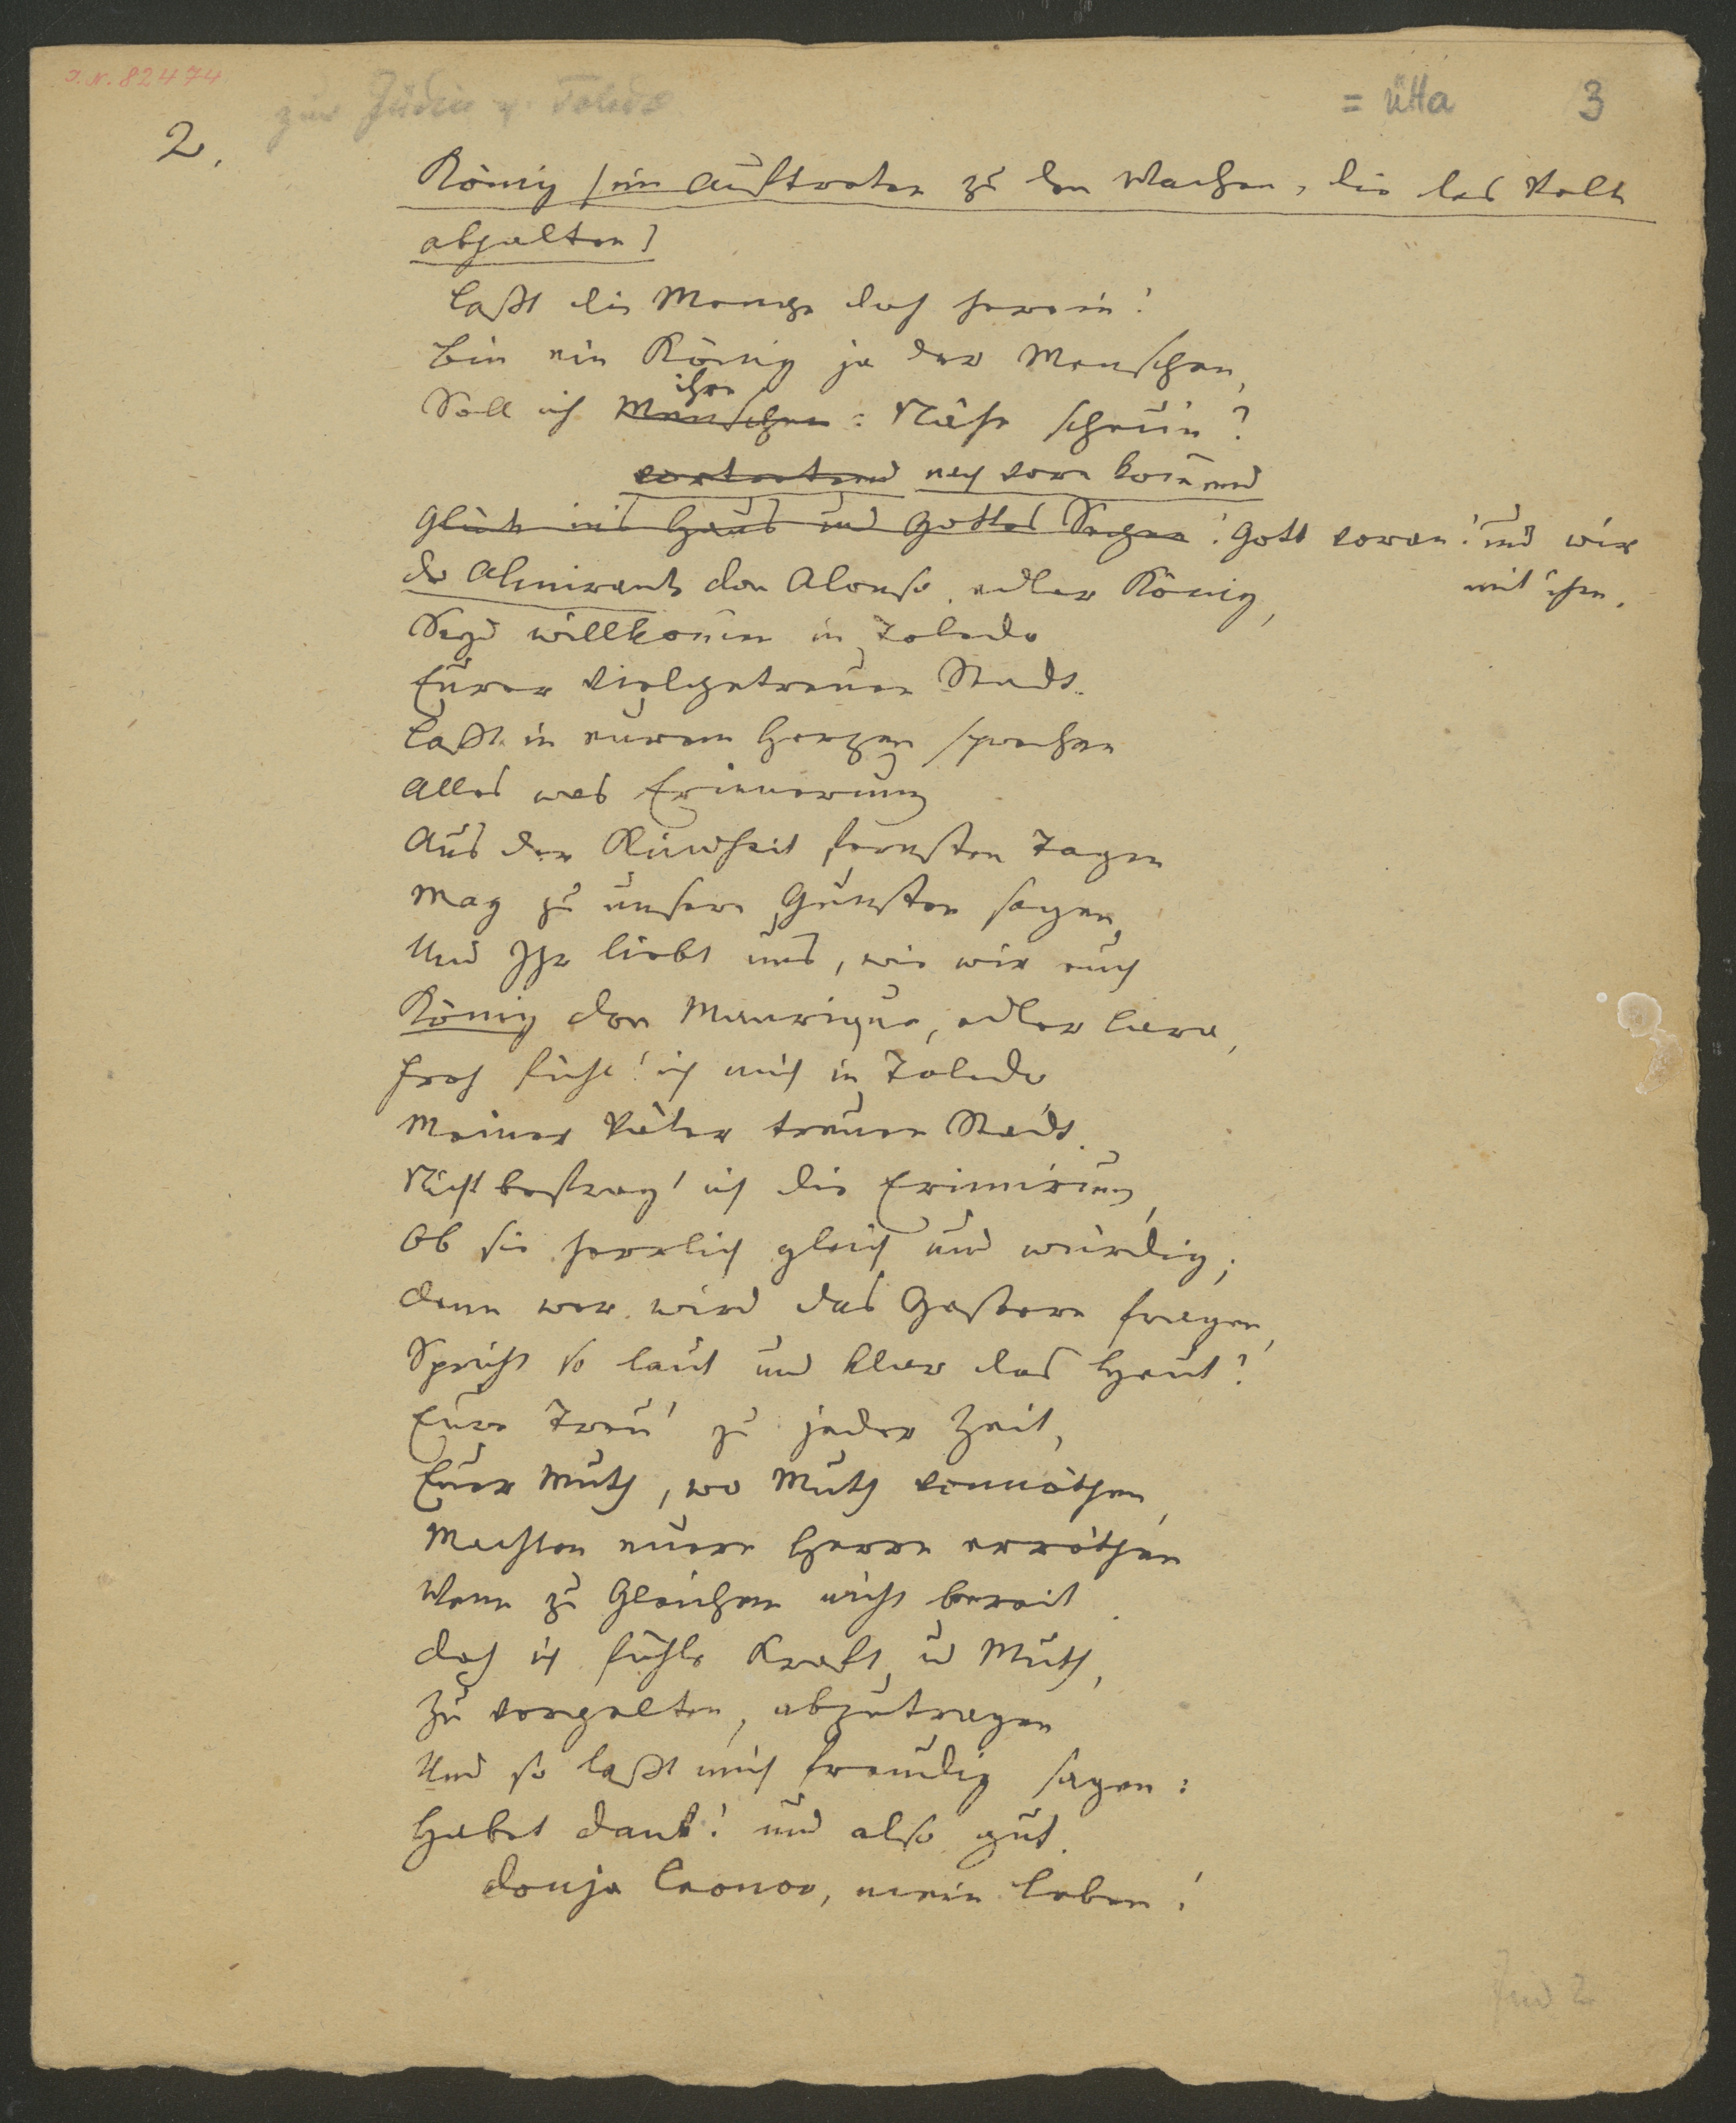 I. N. 82474
zur Jüdin v. Toledo
= üHa
3
2.
König (im Auftreten zu den Wachen, die das Volk
abhalten)
Laßt die Menge doch herein!
Bin ein König ja der Menschen,
ihre
Soll ich Menschen: Nähe scheun?
vortretend nach vorn kommend
Glück ins Haus und Gottes Segen! Gott voran! und wir
mit ihm.
Der Almirante Don Alonso, edler König,
Seyd willkommen in Toledo
Eurer vielgetreuen Stadt.
Laßt in eurem Herzen sprechen
Alles was Erinnerung
Aus der Kindheit fernsten Tagen
Mag zu unsern Gunsten sagen,
Und Ihr liebt uns, wie wir euch
König Don Manrique, edler Lara,
Froh fühl' ich mich in Toledo
Meiner Väter treuen Stadt.
Nicht befrag' ich die Erinnrung,
Ob sie herrlich gleich und würdig;
Denn wer wird das Gestern fragen,
Spricht so laut und klar das Heut?
Eure Treu' zu jeder Zeit,
Euer Muth, wo Muth vonnöthen,
Machten euern Herrn erröthen
Wenn zu Gleichem nicht bereit.
Doch ich fühle Kraft u Muth,
Zu vergelten, abzutragen
Und so laßt mich freudig sagen:
Habet Dank! und also gut.
Donja Leonor, mein Leben!
Jüd 2